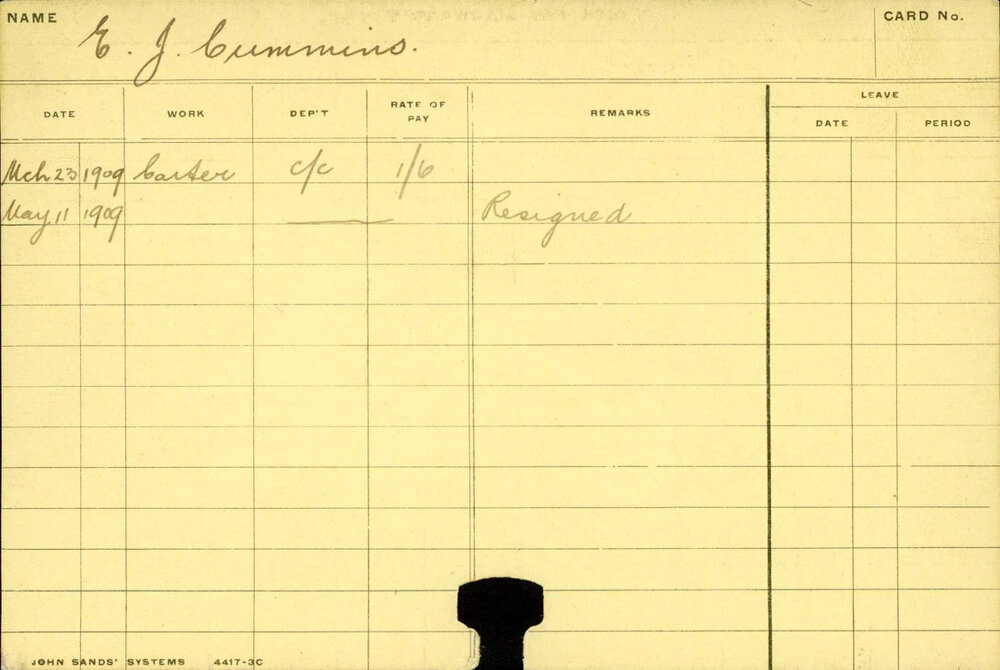 NAME E. J. Cummins. CARD No.
LEAVE
DATE WORK DEP'T RATE OF PAY REMARKS DATE PERIOD
Mch 23 1909 Carter c/c 1/6
May 11 1909 —— Resigned
JOHN SANDS' SYSTEMS 4417-3C